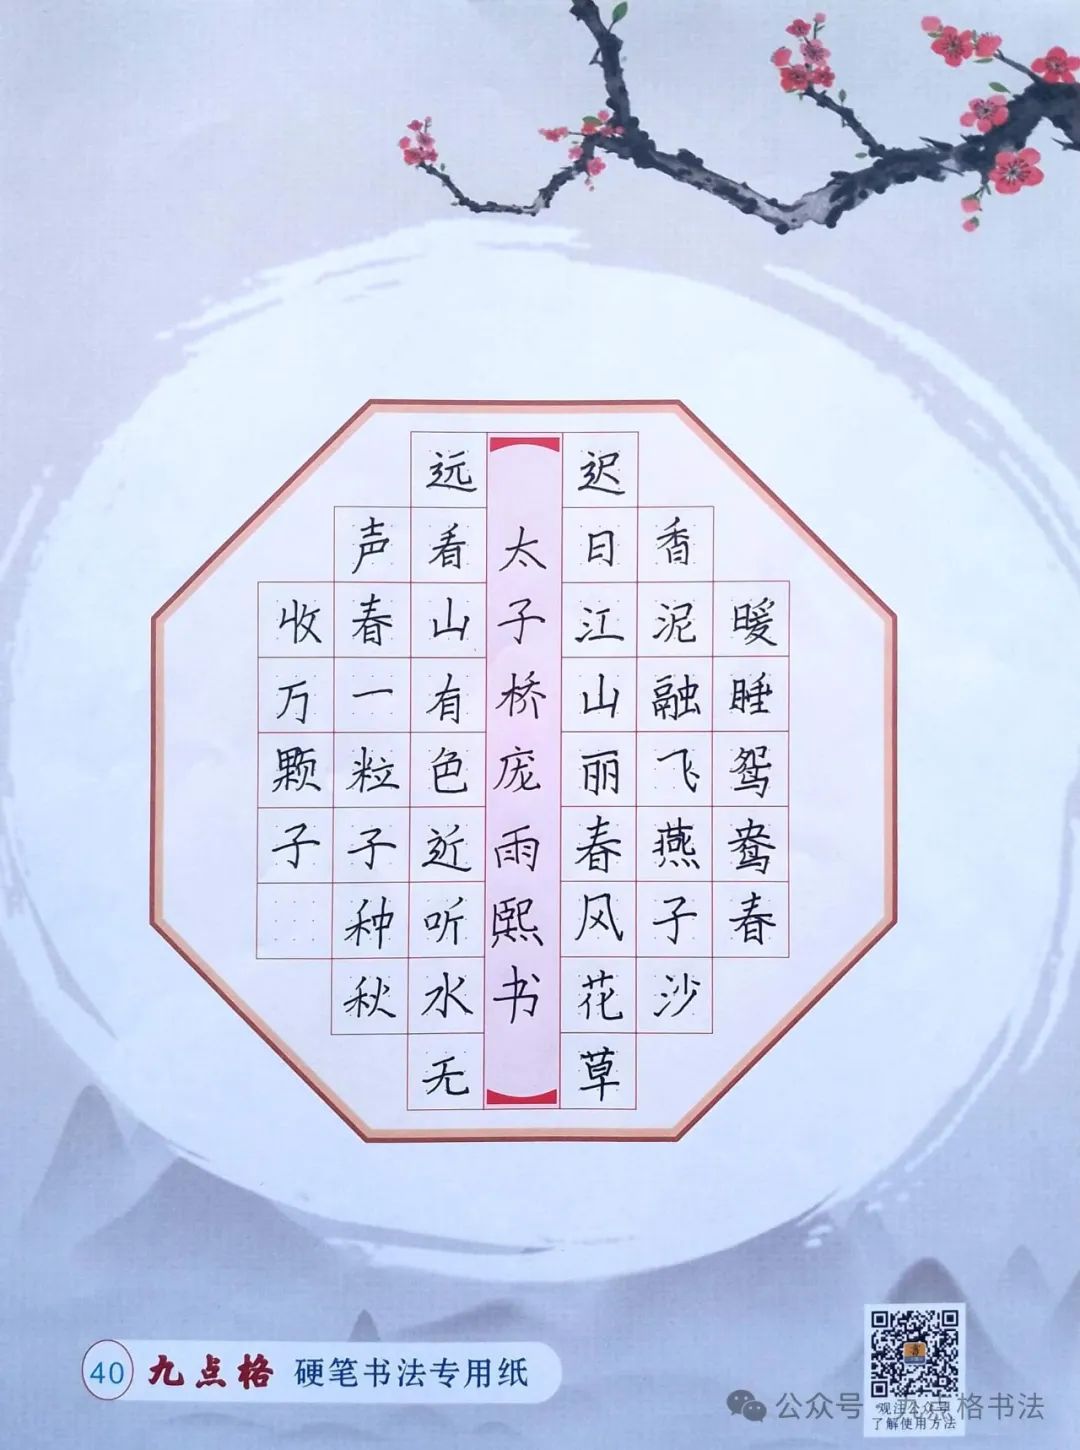 迟日江山丽春风花草
香泥融飞燕子沙
暖睡鸳鸯春
远看山有色近听水无
声春一粒子种秋
收万颗子
太子桥庞雨熙书
40 九点格 硬笔书法专用纸
了解使用方法
公众号 九点格书法